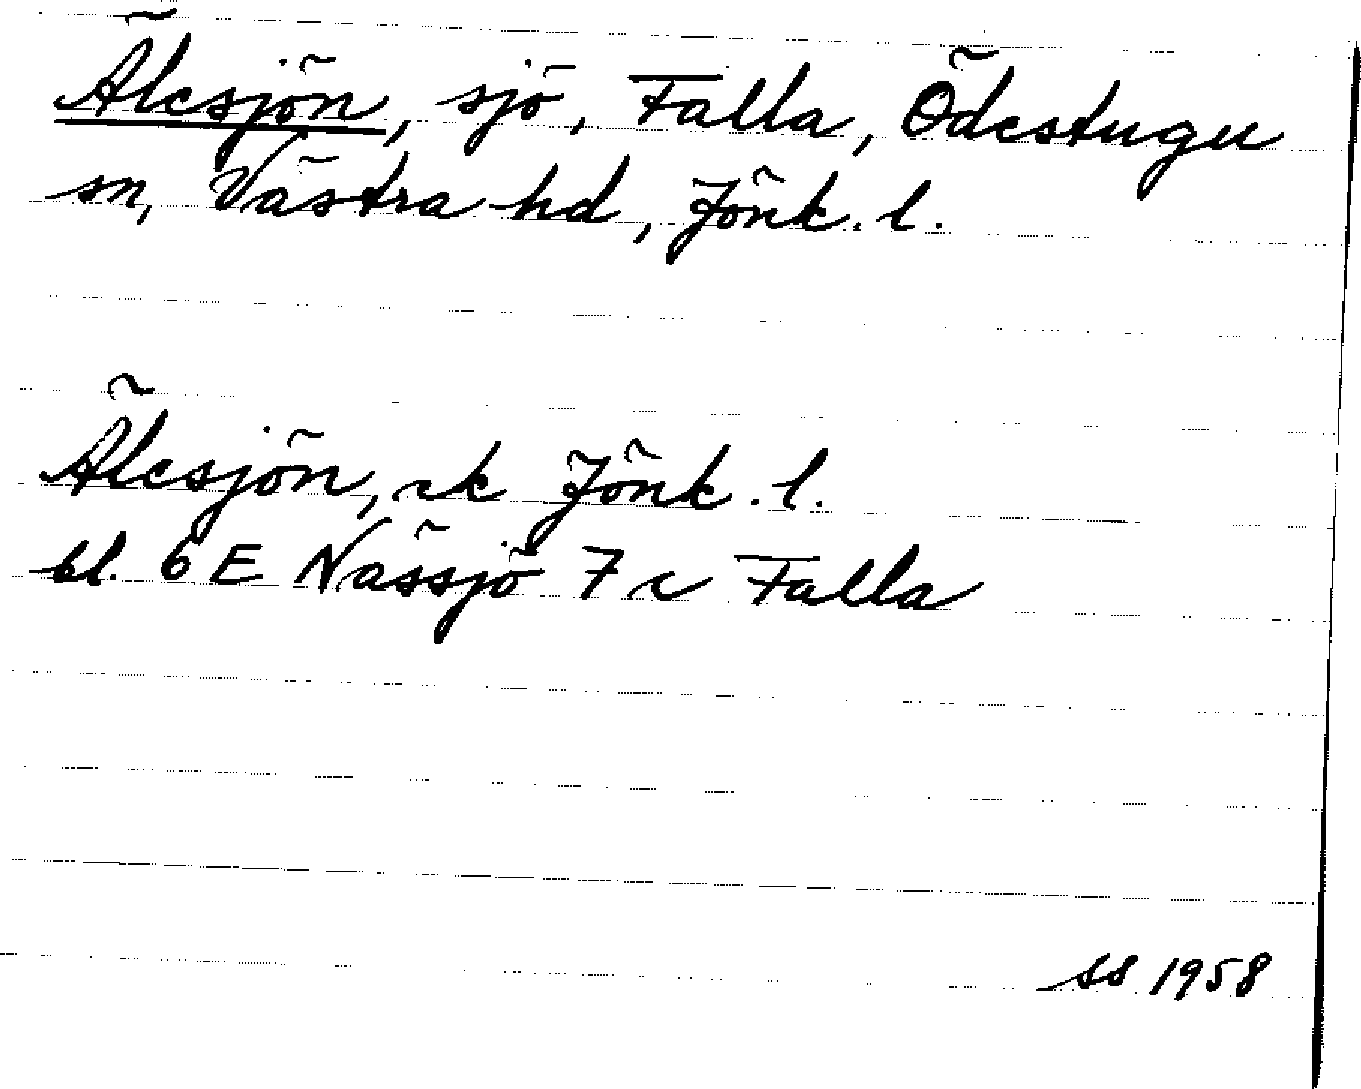 Älesjön, sjö, Falla, Ödestugu
sn, Västra hd, Jönk. l.
Älesjön, ek Jönk. l.
bl. 6 E Nässjö 7 c Falla
SS 1958